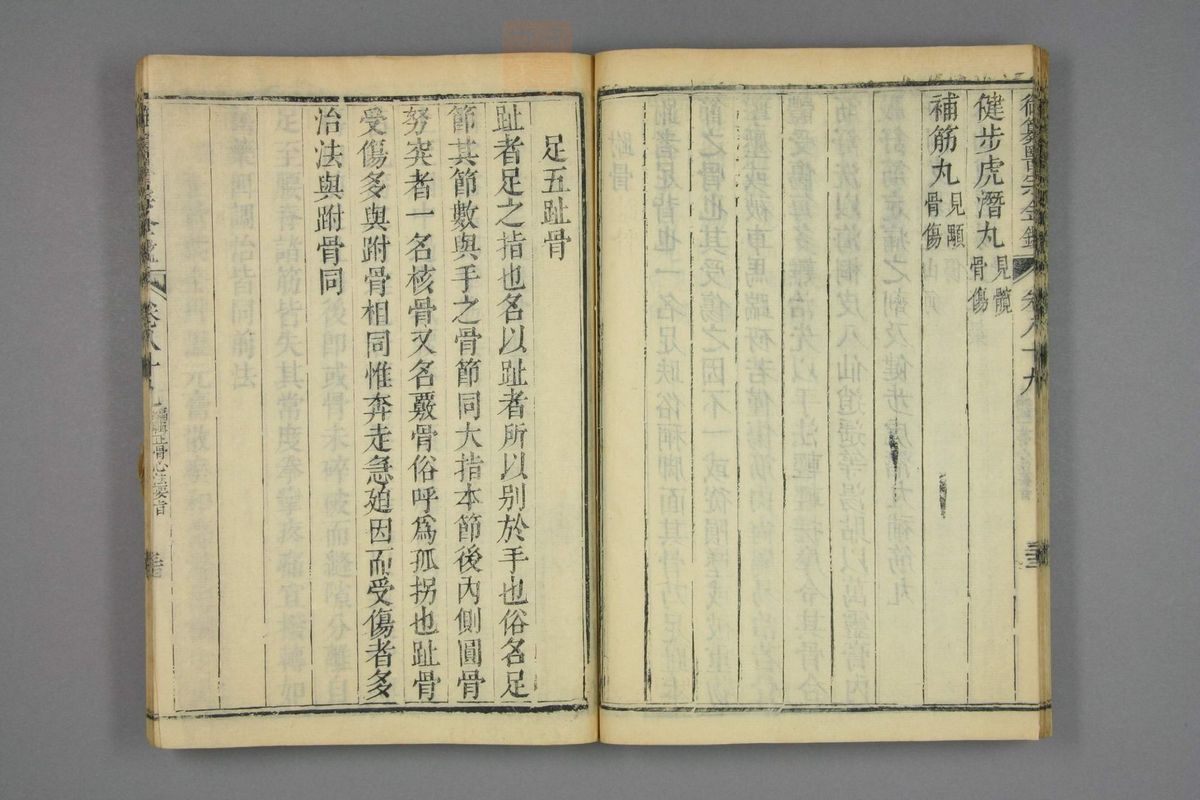 御纂醫宗金鑑 卷八十九
健步虎潛丸見髖骨傷
補筋丸見顒骨傷
足五趾骨
趾者足之指也名以趾者所以别於手也俗名足
節其節數與手之骨節同大指本節後內側圓骨
努突者一名核骨又名覈骨俗呼爲孤拐也趾骨
受傷多與跗骨相同惟奔走急廹因而受傷者多
治法與跗骨同
編輯正骨心法要旨